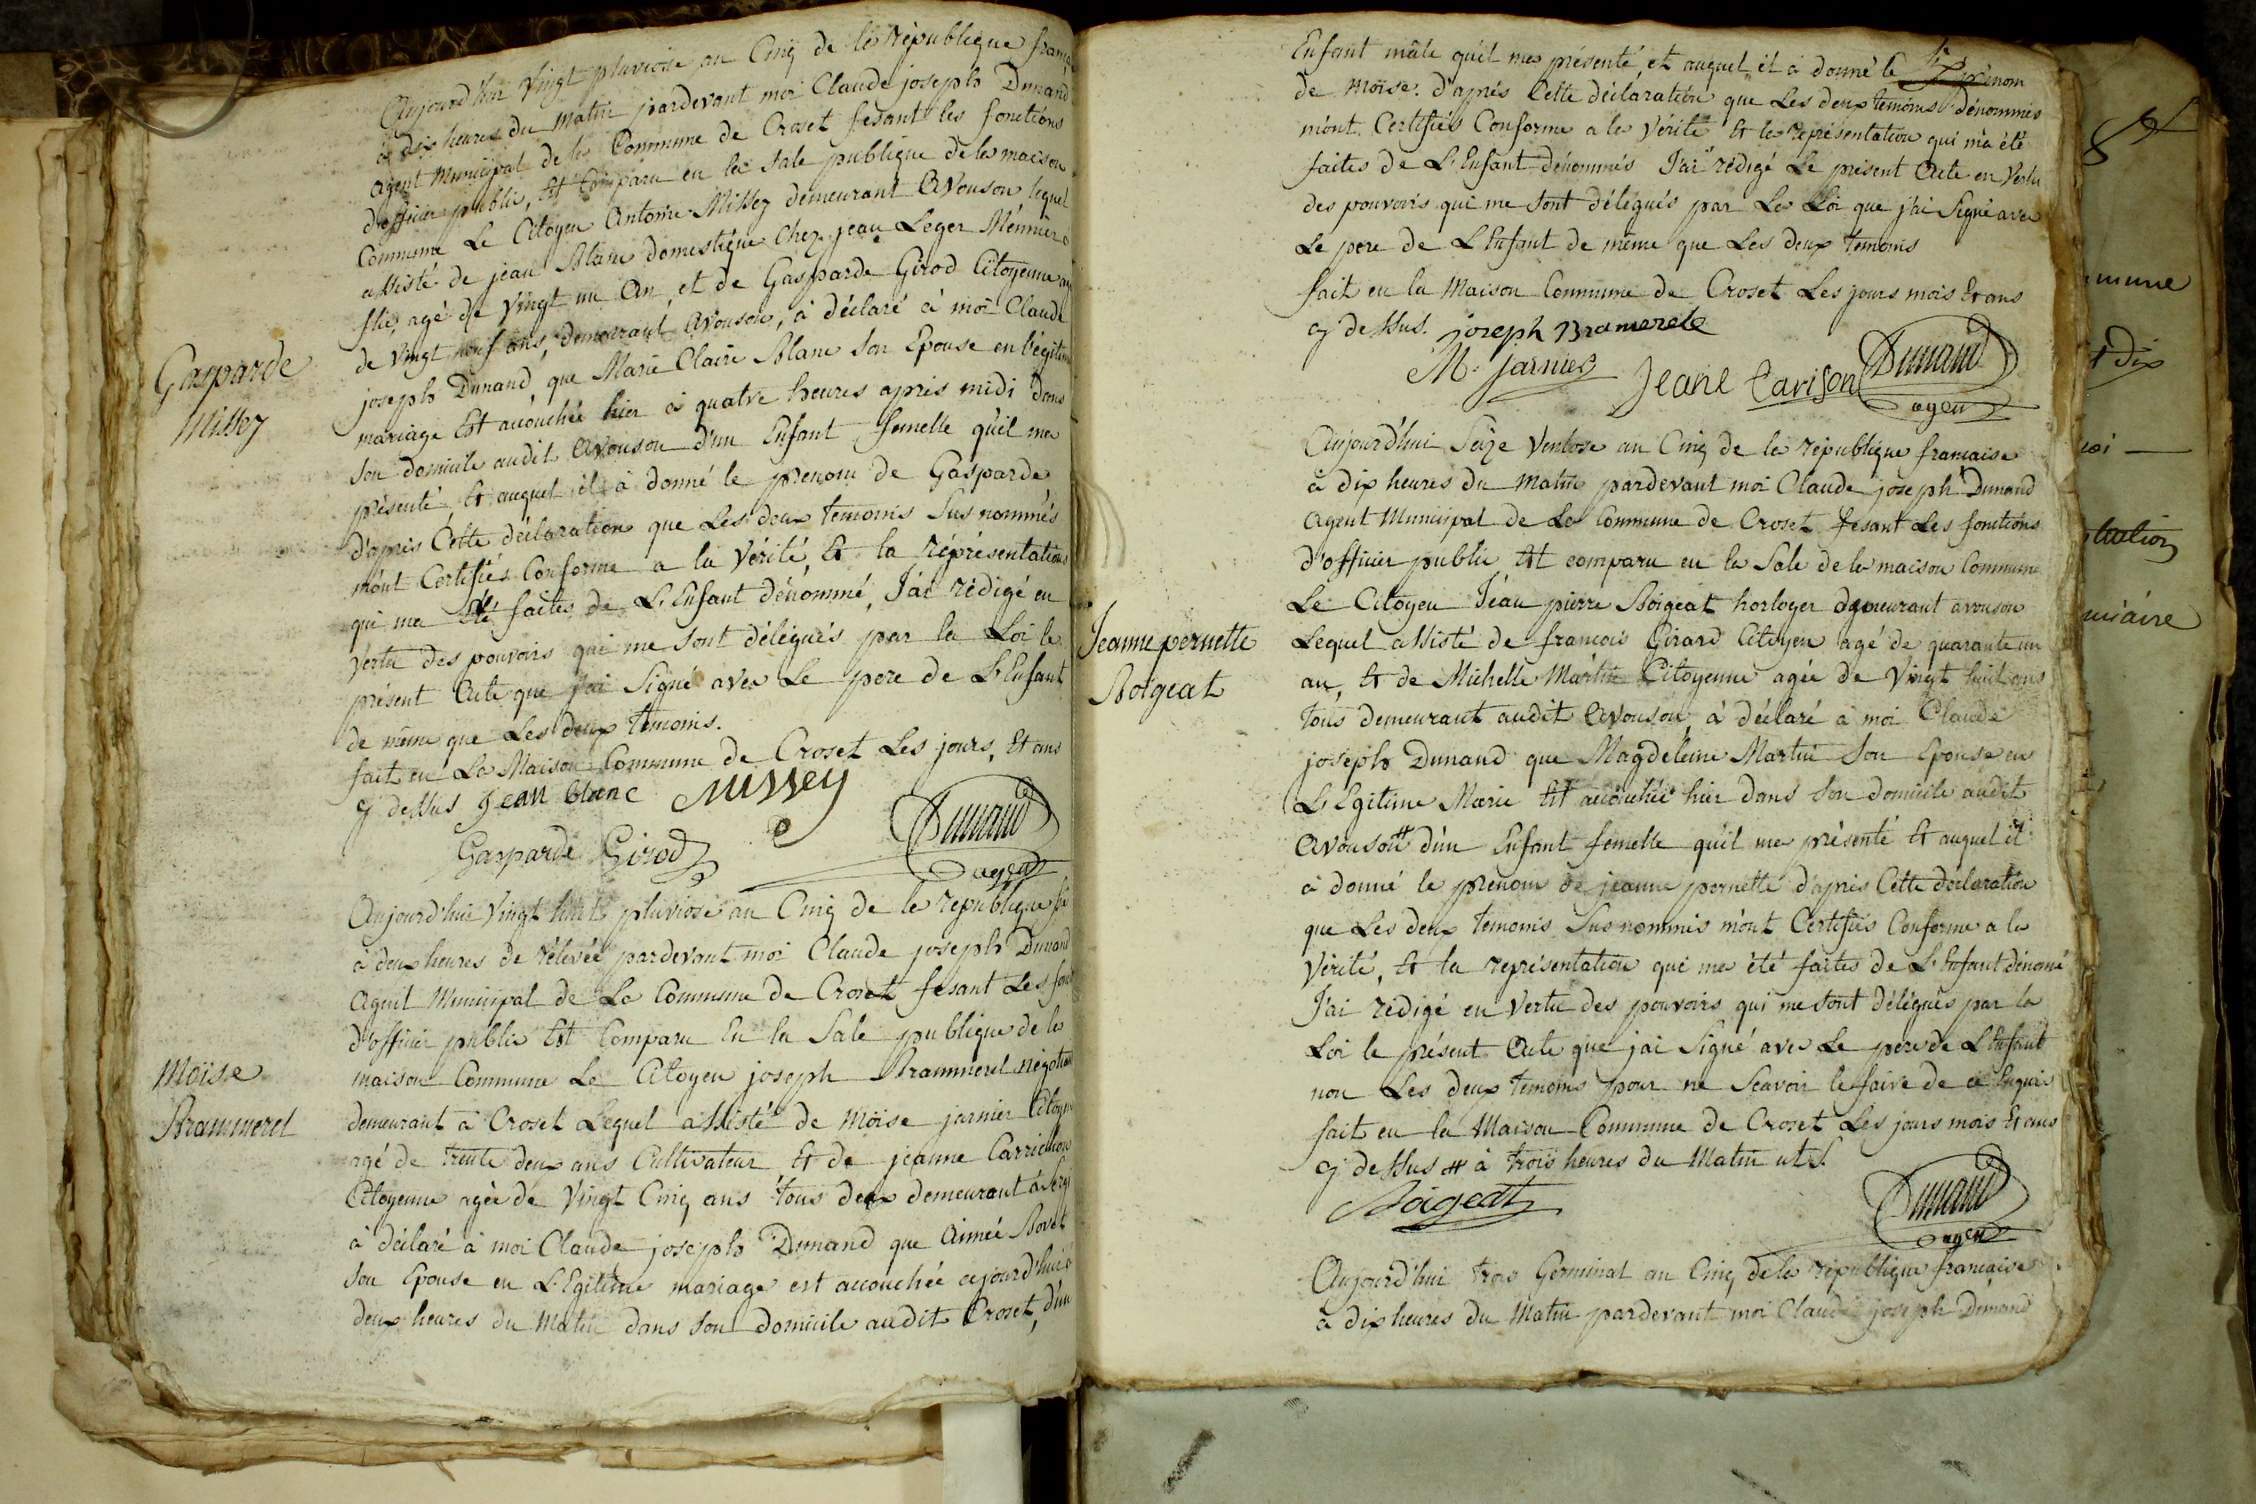 Aujourd'hui vingt pluviose an Cinq de la république franç
à dix heures du matin pardevant moi Claude joseph Dunand
agent Municipal de la Commune de Croset fesant les fonctions
d'officier public, Est Comparu en la sale publique de la maison
Commune Le Citoyen Antoine Missey demeurant Avouson lequel
assisté de jean Blanc domestique chez jean Leger
agé de vingt un an, et de Gasparde Girod Citoyenne
de vingt neuf ans, demeurant Avouson, à déclaré à moi Claude
Gasparde
Missey
joseph Dunand, que Marie Claire Blanc son Epouse en légitim
mariage Est acouchée hier à quatre heures apres midi dans
son domicile audit Avouson d'un Enfant femelle qu'il ma
présenté, Et auquel il à donné le prenom de Gasparde
d'apris Cette déclaration que Les deux temoins Sus nommés
m'ont Certifiés Conforme a la Vérité, Et la réprésentation
qui ma été faites de L'Enfant dénommé, J'ai rédigé en
vertu des pouvoirs qui me sont délégués par la Loi le
présent Acte que j'ai Signé avec Le pere de L'Enfant
de même que Les deux temoins.
fait en La Maison Commune de Croset Les jours, Et ans
cy dessus Jean blanc Missey
Gasparde Girod Dunand
agent
Aujourd'hui vingt huit pluviose an Cinq de la republique
à deux heures de rélévée pardevant moi Claude joseph Dunand
Agent Municipal de La Commune de Croset fesant Les fon
d'officier public Est Comparu En la Sale publique de la
Moïse
Brammerel
maison Commune Le Citoyen joseph Brammerel négotian
demeurant à Croset Lequel assisté de Moïse jarnier Citoyen
agé de trente deux ans Cultivateur Et de jeanne Carrichon
Citoyenne agée de Vingt Cinq ans tous deux demeurant à
à déclaré à moi Claude joseph Dunand que Aimée Bovet
Son Epouse en L'Egitime mariage est accouchée ajourd'hui à
deux heures du Matin dans son domicile audit Croset, d'un
Enfant mâle qu'il ma présenté, et auquel il à donné le prénom
de Moïse. d'aprés Cette déclaration que Les deux temoins dénommés
m'ont Certifiés Conforme a la Vérité Et la représentation qui m'a été
faites de L'Enfant dénommés J'ai rédigé Le présent Acte en Vertu
des pouvoirs qui me sont délégués par La Loi que j'ai Signé avec
Le pere de L'Enfant de même que Les deux temoins
fait en la Maison Commune de Croset Les jours mois Et ans
cy dessus. joseph Bramerele
M. jarnier Jeane Carison Dunand
agent
Aujourd'hui Seize Ventose an Cinq de la république francaise
à dix heures du Matin pardevant moi Claude joseph Dunand
agent Municipal de La Commune de Croset fesant Les fonctions
d'officier public Est comparu en la Sale de la maison Commune
Le Citoyen Jean pierre Boigeat horloger demeurant avouson
Jeanne pernette
Boigeat
Lequel assisté de francois Girard Citoyen agé de quarante un
an, Et de Michelle Martin Citoyenne agée de Vingt huit ans
tous demeurant audit Avouson, à déclaré à moi Claude
joseph Dunand que Magdeleine Martin Son Epouse en
L'Egitime Marie Est acouchée hier dans Son domicile audit
Avouson # d'un Enfant femelle qu'il ma présenté Et auquel il
à donné le prenom de jeanne pernette d'apris Cette déclaration
que Les deux temoins Sus nommés m'ont Certifiés Conforme a la
Vérité, Et la représentation qui ma été faites de L'Enfant dénomé
J'ai rédigé en Vertu des pouvoirs qui me sont délégués par la
Loi le présent Acte que j'ai Signé avec Le pere de L'Enfant
non Les deux temoins pour ne Scavoir le faire de ce Enquis
fait en la Maison Commune de Croset Les jours mois Et ans
cy dessus # à trois heures du Matin
Boigeat Dunand
agent
Aujourd'hui trois Germinal an Cinq de la république francaise
à dix heures du Matin pardevant moi Claude joseph Dunand
mmune
dix